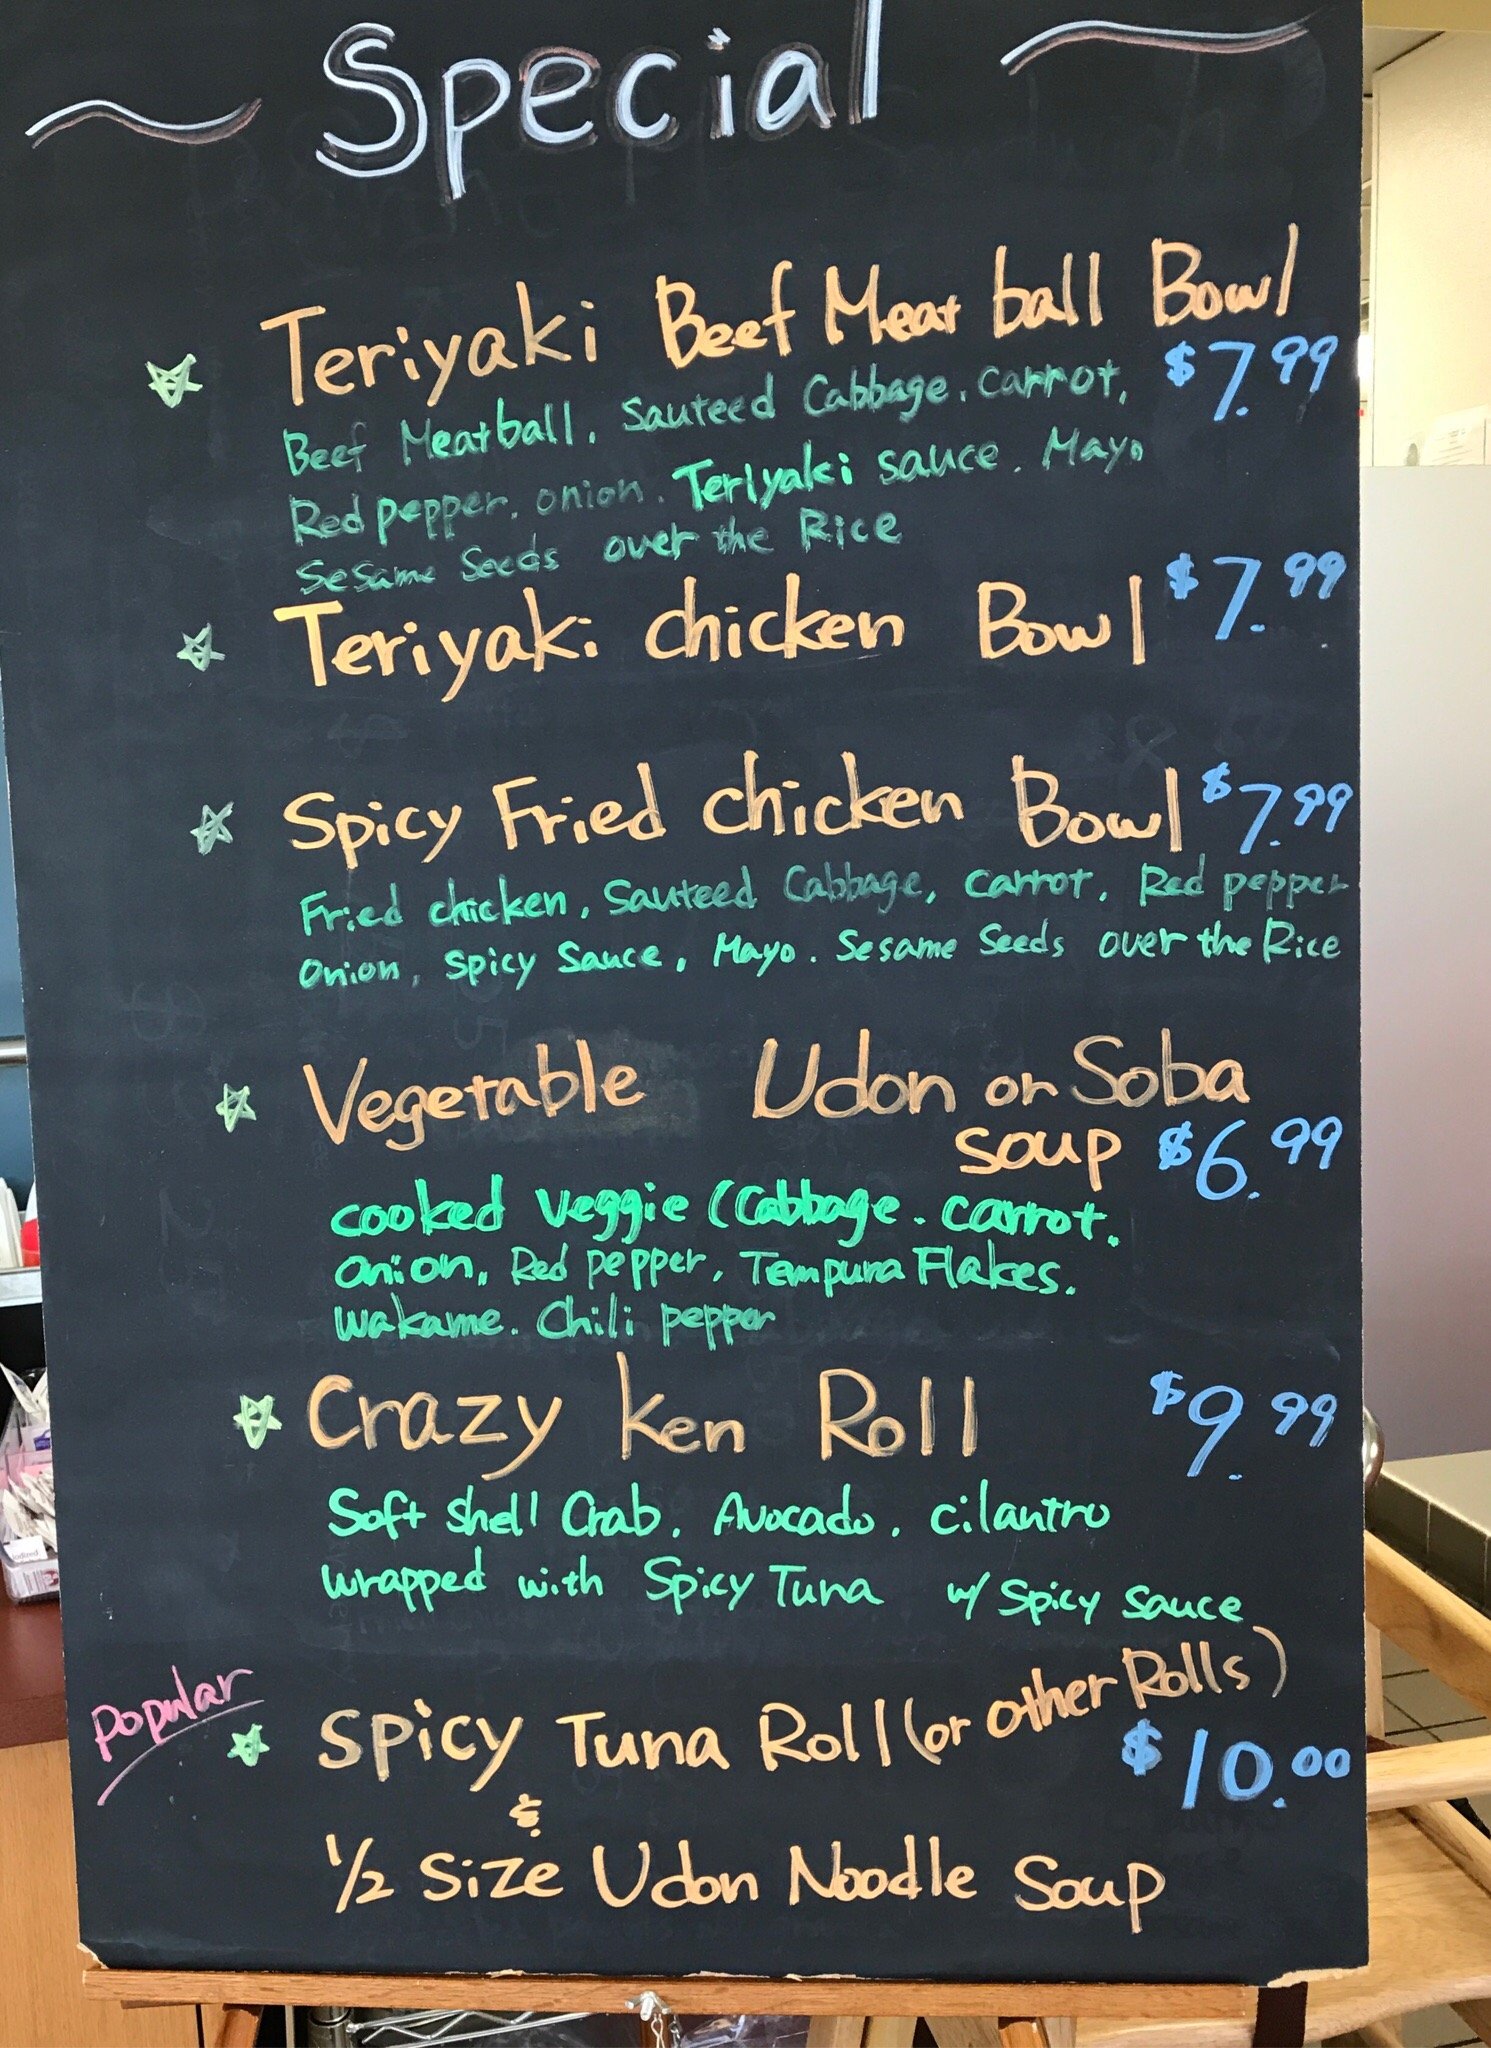 Special
Teriyaki Beef Meat ball Bowl
$7.99
Beef Meatball, Sauteed Cabbage, carrot,
Red pepper, onion, Teriyaki sauce, Mayo
Sesame Seeds over the Rice
Teriyaki chicken Bowl $7.99
Spicy Fried chicken Bowl $7.99
Fried chicken, Sauteed Cabbage, carrot, Red pepper
onion, spicy Sauce, Mayo, Sesame Seeds over the Rice
Vegetable Udon or Soba
soup $6.99
cooked veggie (Cabbage, carrot,
onion, Red pepper, Tempura Flakes,
wakame, Chili pepper
Crazy Ken Roll $9.99
Soft shell Crab, Avocado, cilantro
wrapped with Spicy Tuna w/ Spicy Sauce
Popular
Spicy Tuna Roll (or other Rolls)
$10.00
&
1/2 Size Udon Noodle Soup